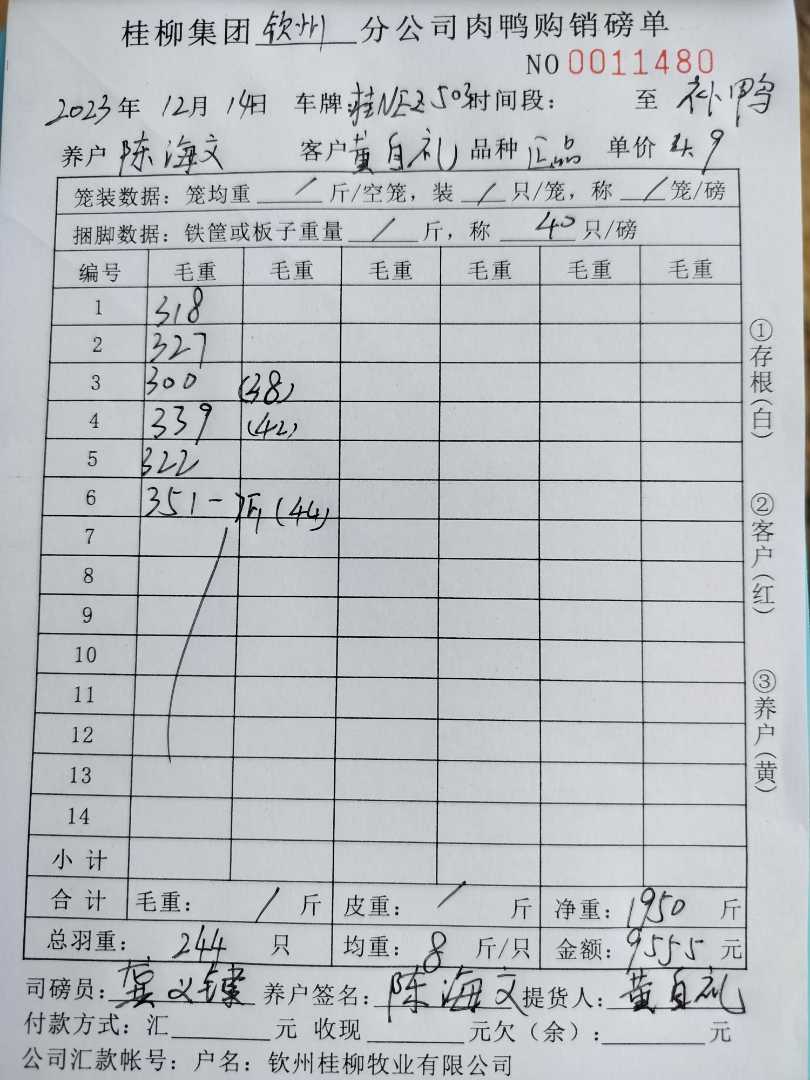 桂柳集团钦州分公司肉鸭购销磅单
NO 0011480
2023年 12月 14日 车牌:桂NEZ503 时间段: 至 补鸭
养户 陈海文 客户 黄自礼 品种 正品 单价 4.9
笼装数据：笼均重 / 斤/空笼，装 / 只/笼，称 / 笼/磅
捆脚数据：铁筐或板子重量 / 斤，称 40 只/磅
编号 毛重 毛重 毛重 毛重 毛重 毛重
1 318
2 327
3 300 (38)
4 339 (42)
5 322
6 351- (44)
7
8
9
10
11
12
13
14
小计
合计 毛重： / 斤 皮重： / 斤 净重：1950 斤
总羽重： 244 只 均重：8 斤/只 金额：9555 元
司磅员： 养户签名：陈海文 提货人：黄自礼
付款方式：汇 元 收现 元欠（余）： 元
公司汇款帐号：户名：钦州桂柳牧业有限公司
①存根(白)
②客户(红)
③养户(黄)